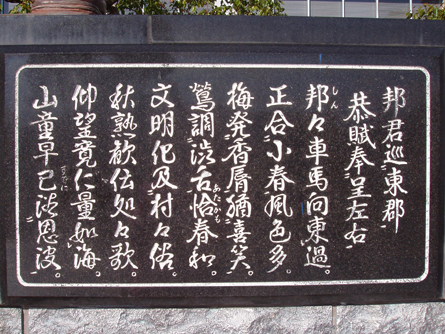 邦君巡東郡
恭賦奉呈左右
邦々車馬向東過。
正合小春風色多。
梅発香唇猶喜笑。
鶯調渋舌恰春和。
文明化及村々俗。
秋熟歓伝処々歌。
仰望寛仁量如海。
山童早已浴恩波。